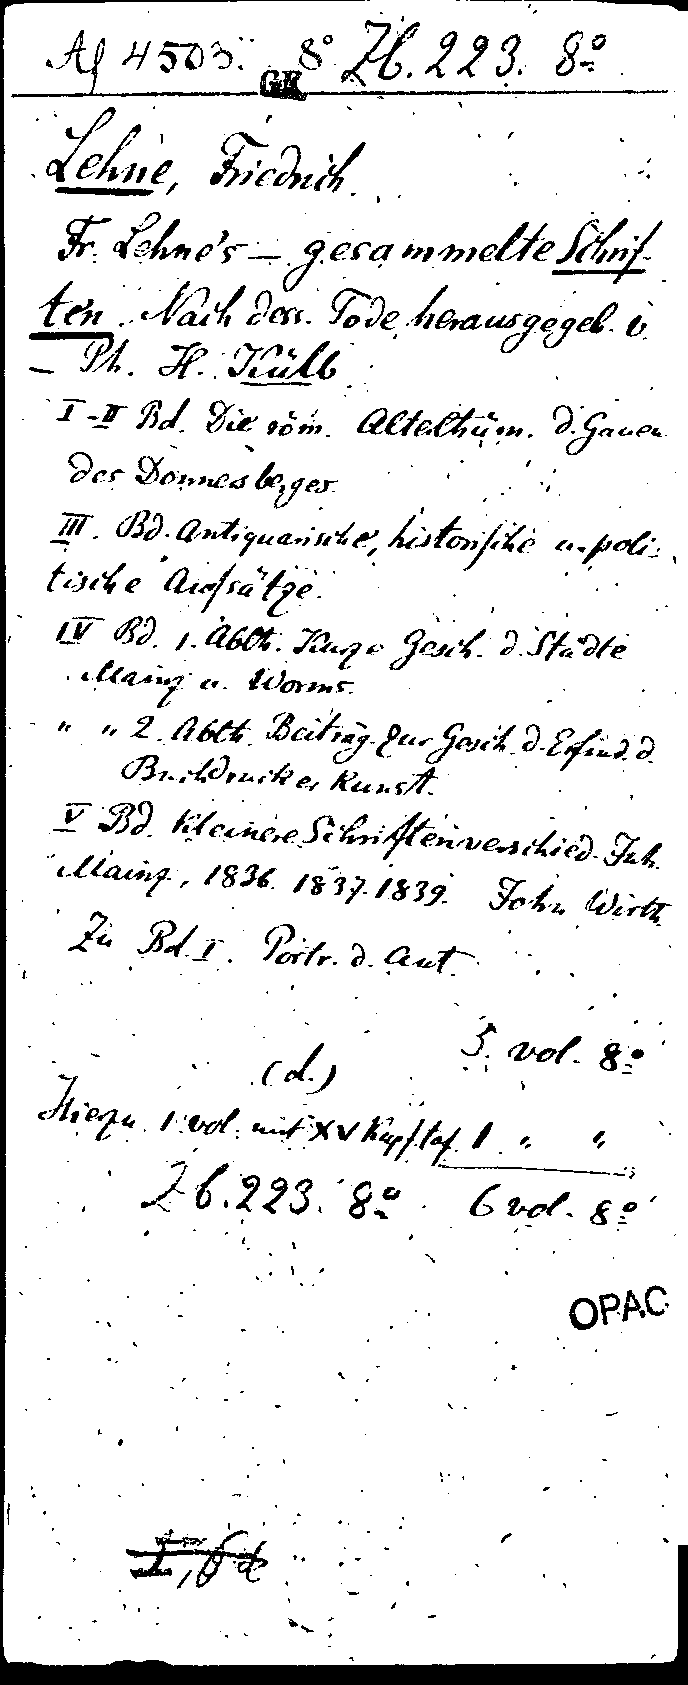 Af 4503. 8° Zb. 223. 8°
GK
Lehne, Friedrich.
Fr. Lehne's – gesammelte Schrif-
ten. Nach dess. Tode herausgegeb. v.
– Ph. H. Külb
I-II Bd. Die röm. Altelthüm. d. Gauen
des Donnersberges.
III. Bd. Antiquarische, historische u. poli-
tische Aufsätze.
IV Bd. 1. Abth. Kurze Gesch. d. Städte
Mainz u. Worms.
" " 2. Abth. Beiträg. zur Gesch. d. Erfind. d.
Buchdrucker Kunst.
V Bd. Kleinere Schriften verschied. Inh.
Mainz, 1836. 1837. 1839. John Wirth.
Zu Bd. I. Portr. d. Aut.
5. vol. 8°
(d.)
Hiezu 1 vol. mit XV Kupf.taf. 1 " "
Zb. 223. 8° 6 vol. 8°
OPAC